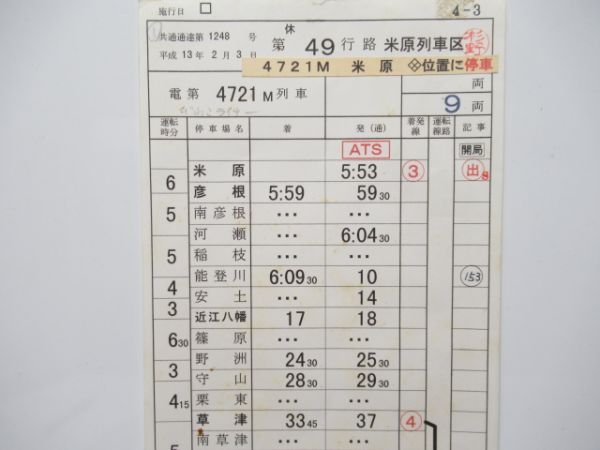 施行日 □
4-3
共通通達第1248号 休
平成13年2月3日 第49行路 米原列車区 杉野
4721M 米原 ◇位置に停車
両
電第4721M列車
びわこライナー
9両
運転時分 停車場名 着 発(通) 着発線 運転線路 記事
ATS 開局
米原 5:53 ③ 出 8
6
彦根 5:59 59 30
5 南彦根 ・・・ ・・・
河瀬 ・・・ 6:04 30
5 稲枝 ・・・ ・・・
能登川 6:09 30 10 153
4
安土 ・・・ 14
3
近江八幡 17 18
6 30 篠原 ・・・ ・・・
野洲 24 30 25 30
3
守山 28 30 29 30
4 15 栗東 ・・・ ・・・
草津 33 45 37 ④
5 南草津 ・・・ ・・・